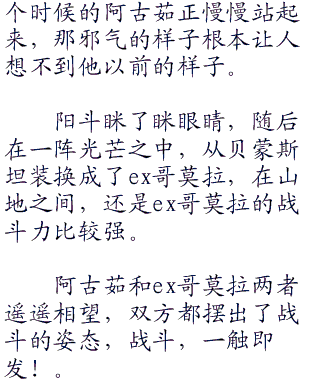 个时候的阿古茹正慢慢站起
来，那邪气的样子根本让人
想不到他以前的样子。
阳斗眯了眯眼睛，随后
在一阵光芒之中，从贝蒙斯
坦装换成了ex哥莫拉，在山
地之间，还是ex哥莫拉的战
斗力比较强。
阿古茹和ex哥莫拉两者
遥遥相望，双方都摆出了战
斗的姿态，战斗，一触即
发！。